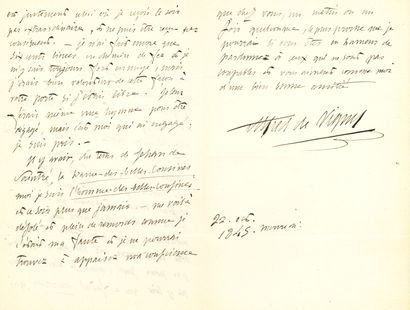 est justement celui où je reçois le soir
par extraordinaire, et ne puis être
conséquent. — je n'ai fait encore que
six cents lieues en chemin de fer et je
m'y suis toujours
j'irais bien volontiers de cette façon à
votre porte si j'étais libre.
serais même une femme pour être
engagé, mais c'est moi qui ai engagé,
je suis pris. —
Il y avait, du tems de Jehan de
Saintré, la Dame-des-belles-cousines
moi je suis l'homme-des-belles-cousines
et ce soir plus que jamais. — me voilà
désolé et plein de remords comme si
c'était ma faute et je ne pourrai
trouver à appaiser ma conscience
que chez vous, un matin ou un
soir quelconque, le plus proche que je
pourrai si vous êtes en humeur de
pardonner à ceux qui ne sont pas
coupables et vous aiment comme moi
d'une bien bonne amitié.
Alfred de Vigny
22. oct.
1845.